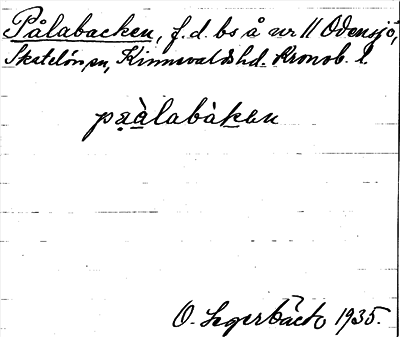 Pålabacken, f.d. bs å nr 11 Odensjö,
Skatelöv sn, Kinnevalds hd. Kronob. l
pa̤àlabàkan
O. Segerbäck 1935.